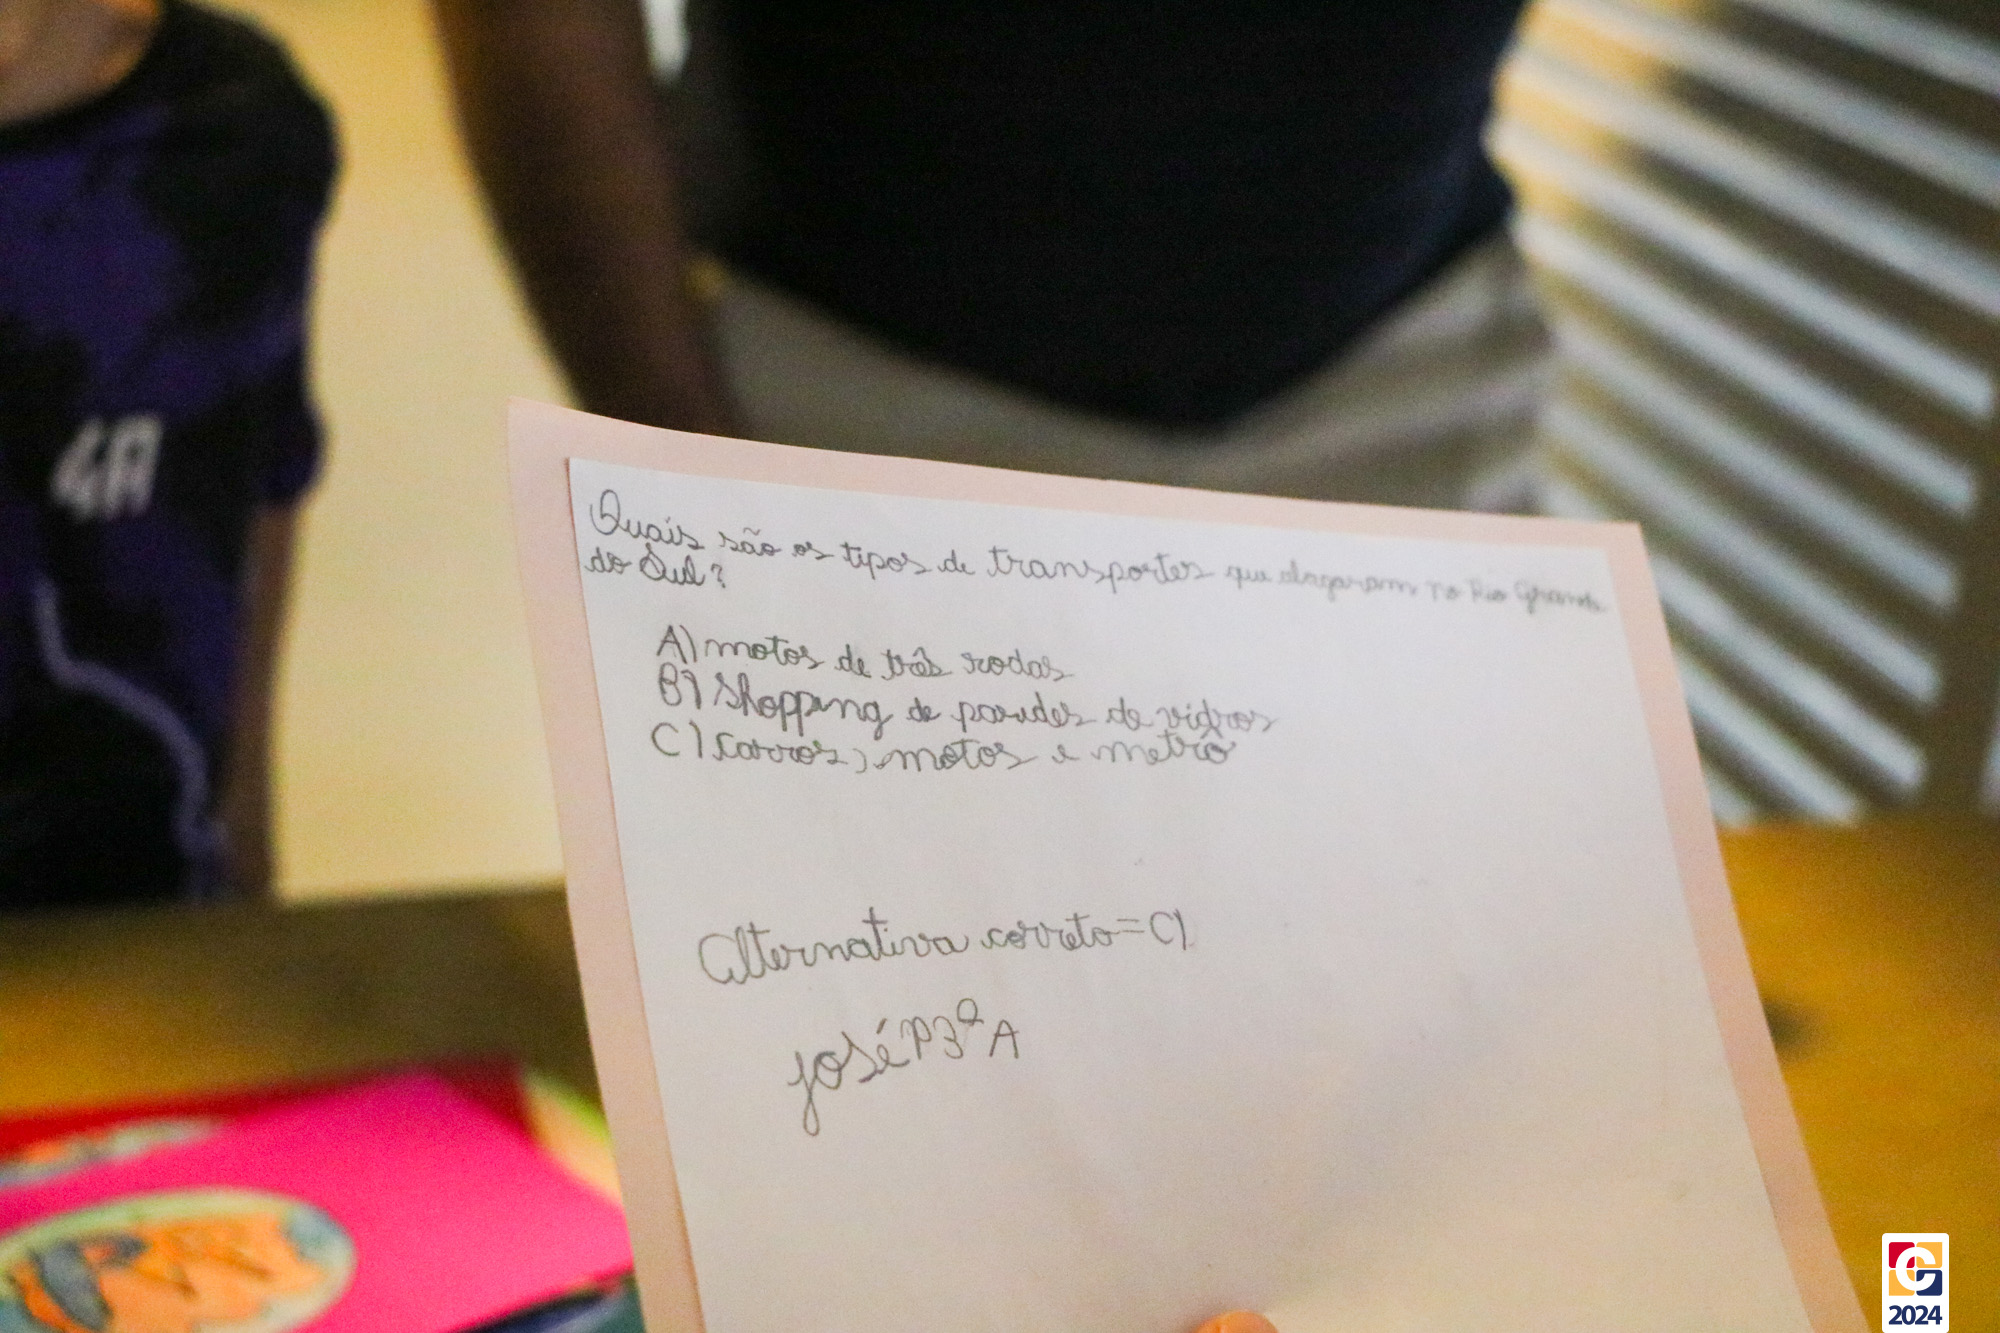 4A
Quais são os tipos de transportes que alagaram no Rio Grande
do Sul?
A) motos de três rodas
B) Shopping de paredes de vidros
C) carros, motos e metrô
Alternativa correto = C)
José P 3º A
2024